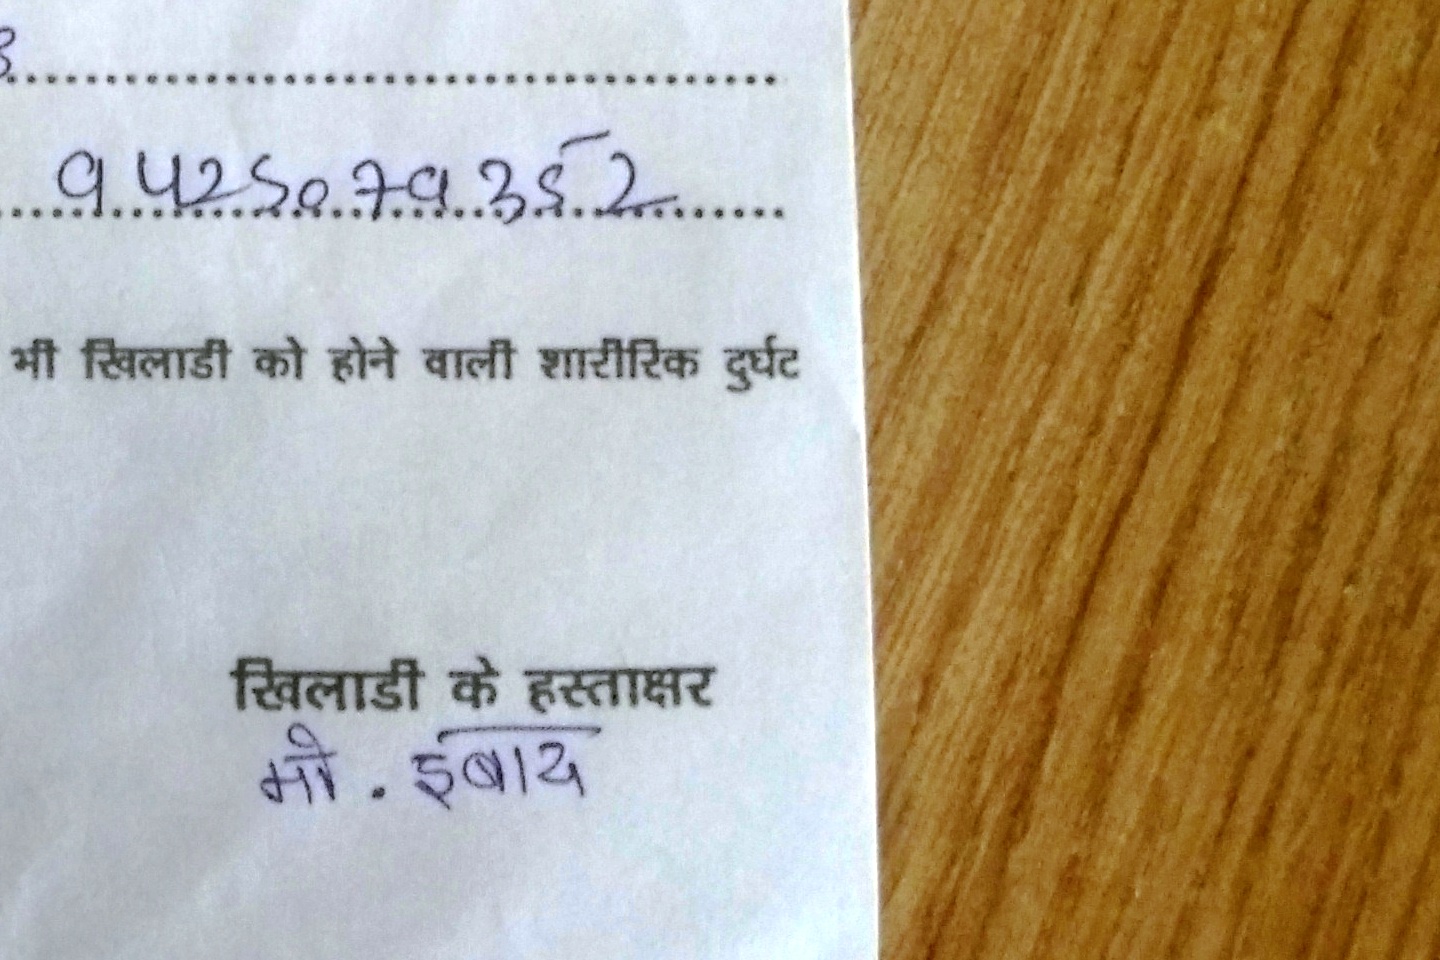 3
9425079352
भी खिलाडी को होने वाली शारीरिक दुर्घट
खिलाडी के हस्ताक्षर
मो. इबाद